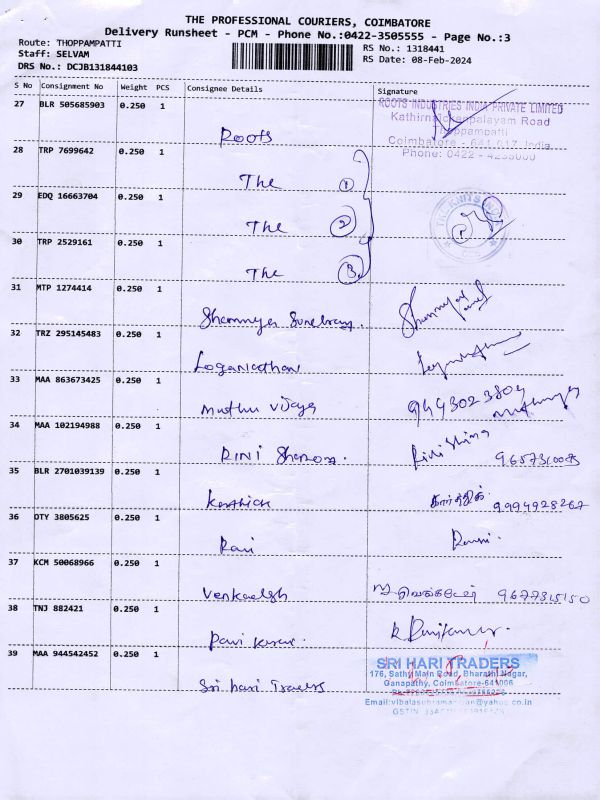 THE PROFESSIONAL COURIERS, COIMBATORE
Delivery Runsheet - PCM - Phone No.:0422-3505555 - Page No.:3
Route: THOPPAMPATTI
Staff: SELVAM
DRS No.: DCJB131844103
RS No.: 1318441
RS Date: 08-Feb-2024
S No Consignment No Weight PCS Consignee Details Signature
27 BLR 505685903 0.250 1
ROOTS INDUSTRIES INDIA PRIVATE LIMITED
Kathirnaickenpalayam Road
Thoppampatti
Coimbatore - 641 017, India
Phone: 0422 - 4233000
Roots
28 TRP 7699642 0.250 1
The 1
29 EDQ 16663704 0.250 1
The 2
30 TRP 2529161 0.250 1
The 3
31 MTP 1274414 0.250 1
32 TRZ 295145483 0.250 1
Loganathan
33 MAA 863673425 0.250 1
muthu vijaya
34 MAA 102194988 0.250 1
RINI
35 BLR 2701039139 0.250 1
Karthick கார்த்திக் 9994928267
36 OTY 3805625 0.250 1
Ravi
37 KCM 50068966 0.250 1
Venkatesh 9677315150
38 TNJ 882421 0.250 1
Pavi Kumar
39 MAA 944542452 1
0.250
SRI HARI TRADERS
176, Sathy Main Road, Bharathi Nagar,
Ganapathy, Coimbatore-641006
Sri hari Traders